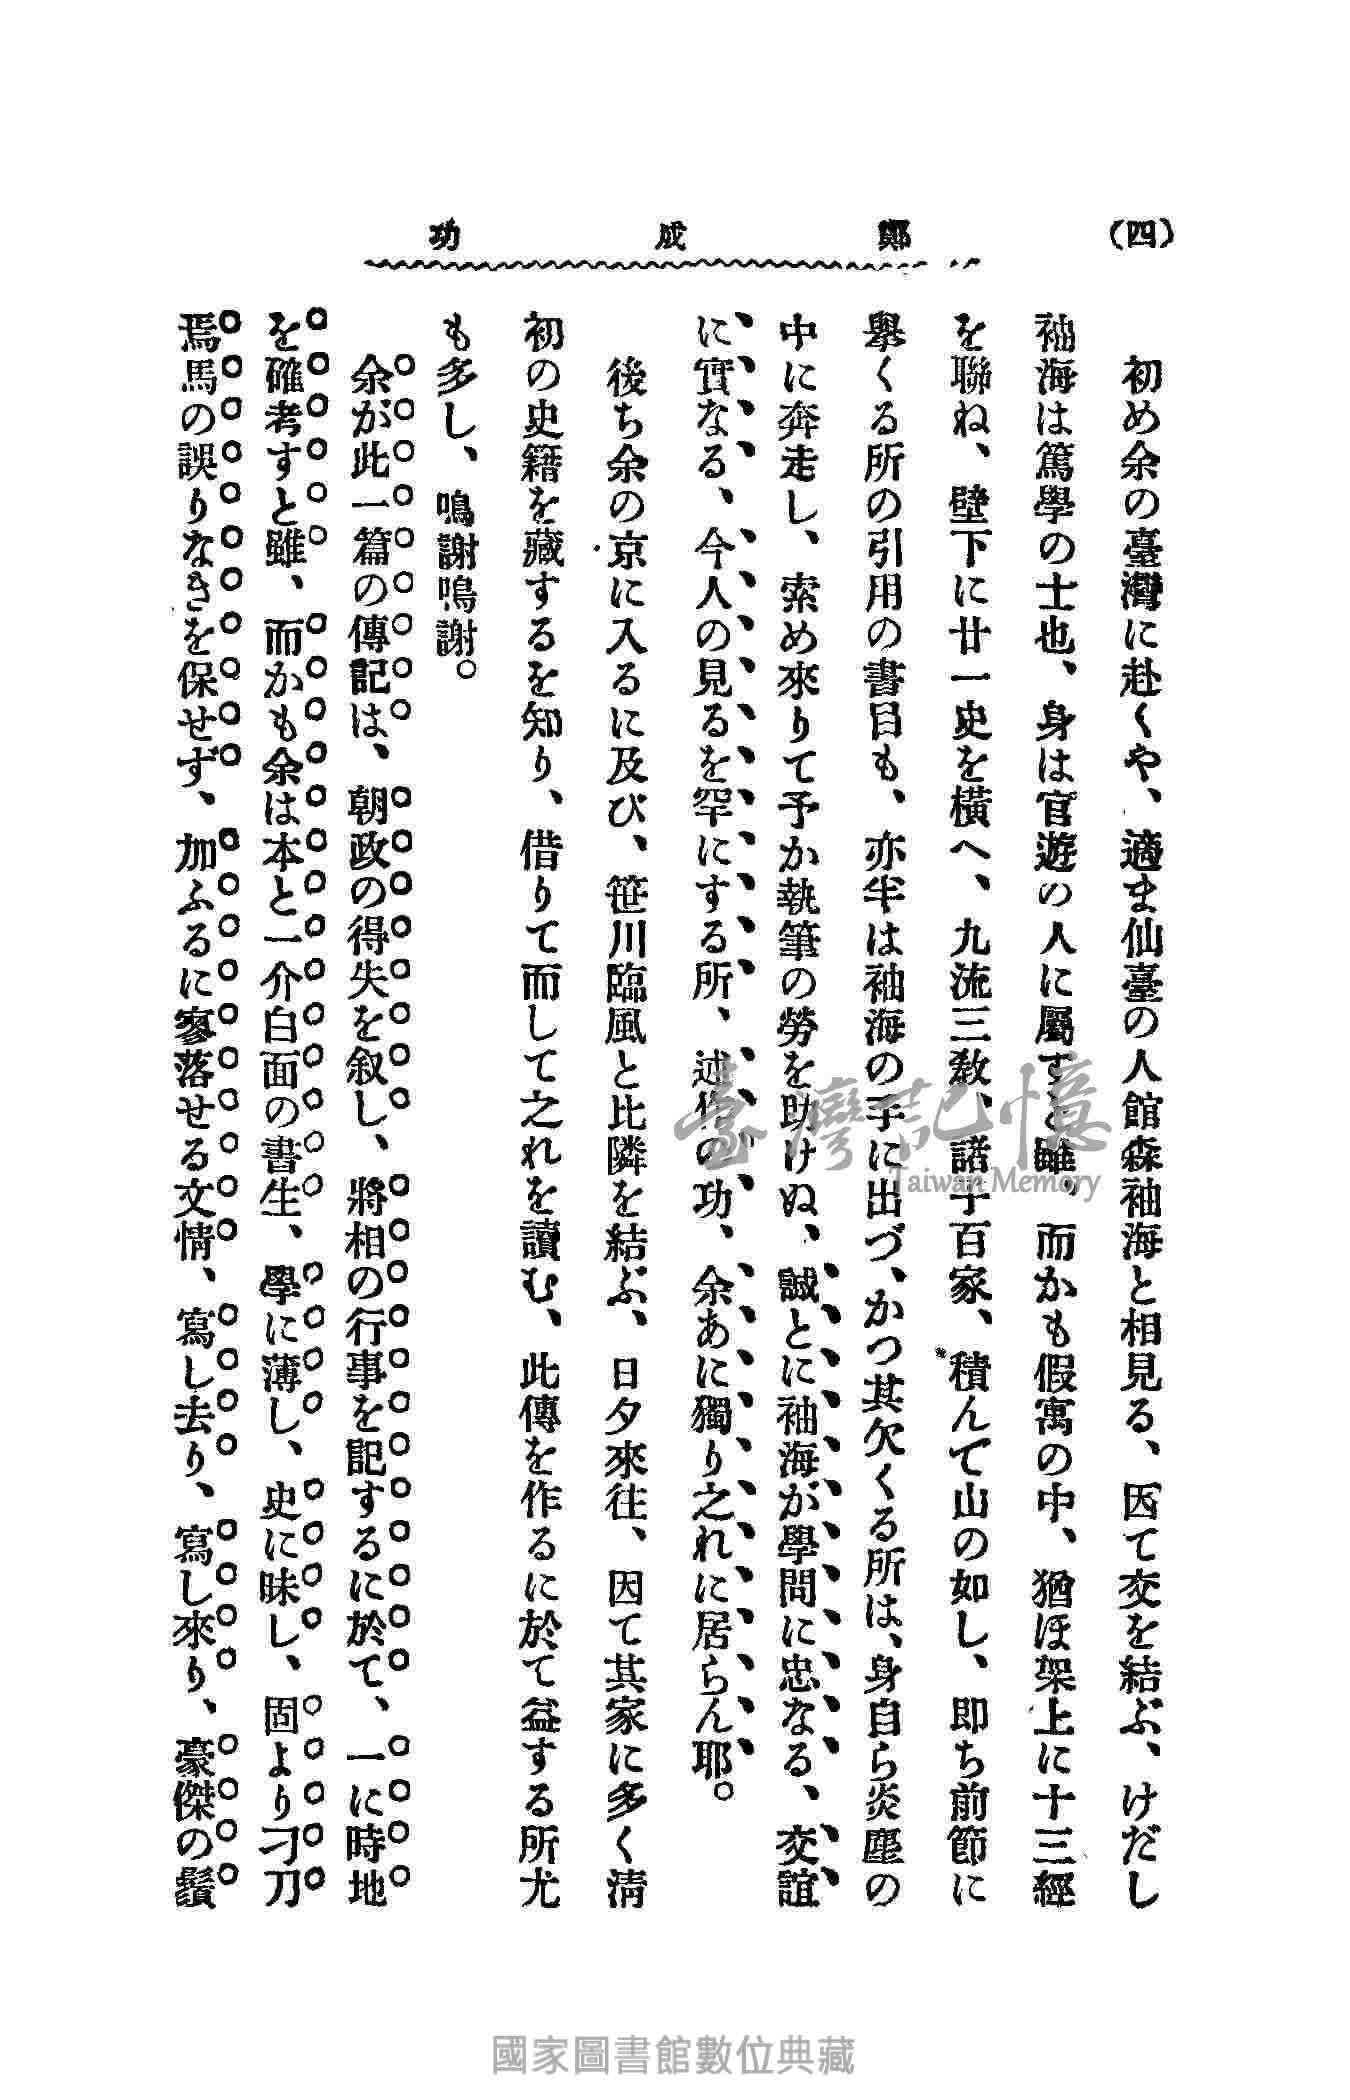 (四)
鄭成功
初め余の臺灣に赴くや、適ま仙臺の人館森袖海と相見る、因て交を結ぶ、けだし
袖海は篤學の士也、身は官遊の人に屬すと雖、而かも假寓の中、猶ほ架上に十三經
を聯ね、壁下に廿一史を橫へ、九流三敎、諸子百家、積んで山の如し、即ち前節に
擧くる所の引用の書目も、亦半は袖海の手に出づ、かつ其欠くる所は、身自ら炎塵の
中に奔走し、索め來りて予か執筆の勞を助けぬ、誠とに袖海が學問に忠なる、交誼
に實なる、今人の見るを罕にする所、述作の功、余あに獨り之れに居らん耶。
後ち余の京に入るに及び、笹川臨風と比隣を結ぶ、日夕來往、因て其家に多く淸
初の史籍を藏するを知り、借りて而して之れを讀む、此傳を作るに於て益する所尤
も多し、鳴謝鳴謝。
余が此一篇の傳記は、朝政の得失を叙し、將相の行事を記するに於て、一に時地
を確考すと雖、而かも余は本と一介白面の書生、學に薄し、史に昧し、固より刁刀
焉馬の誤りなきを保せず、加ふるに寥落せる文情、寫し去り、寫し來り、豪傑の鬚
臺灣記憶
Taiwan Memory
國家圖書館數位典藏